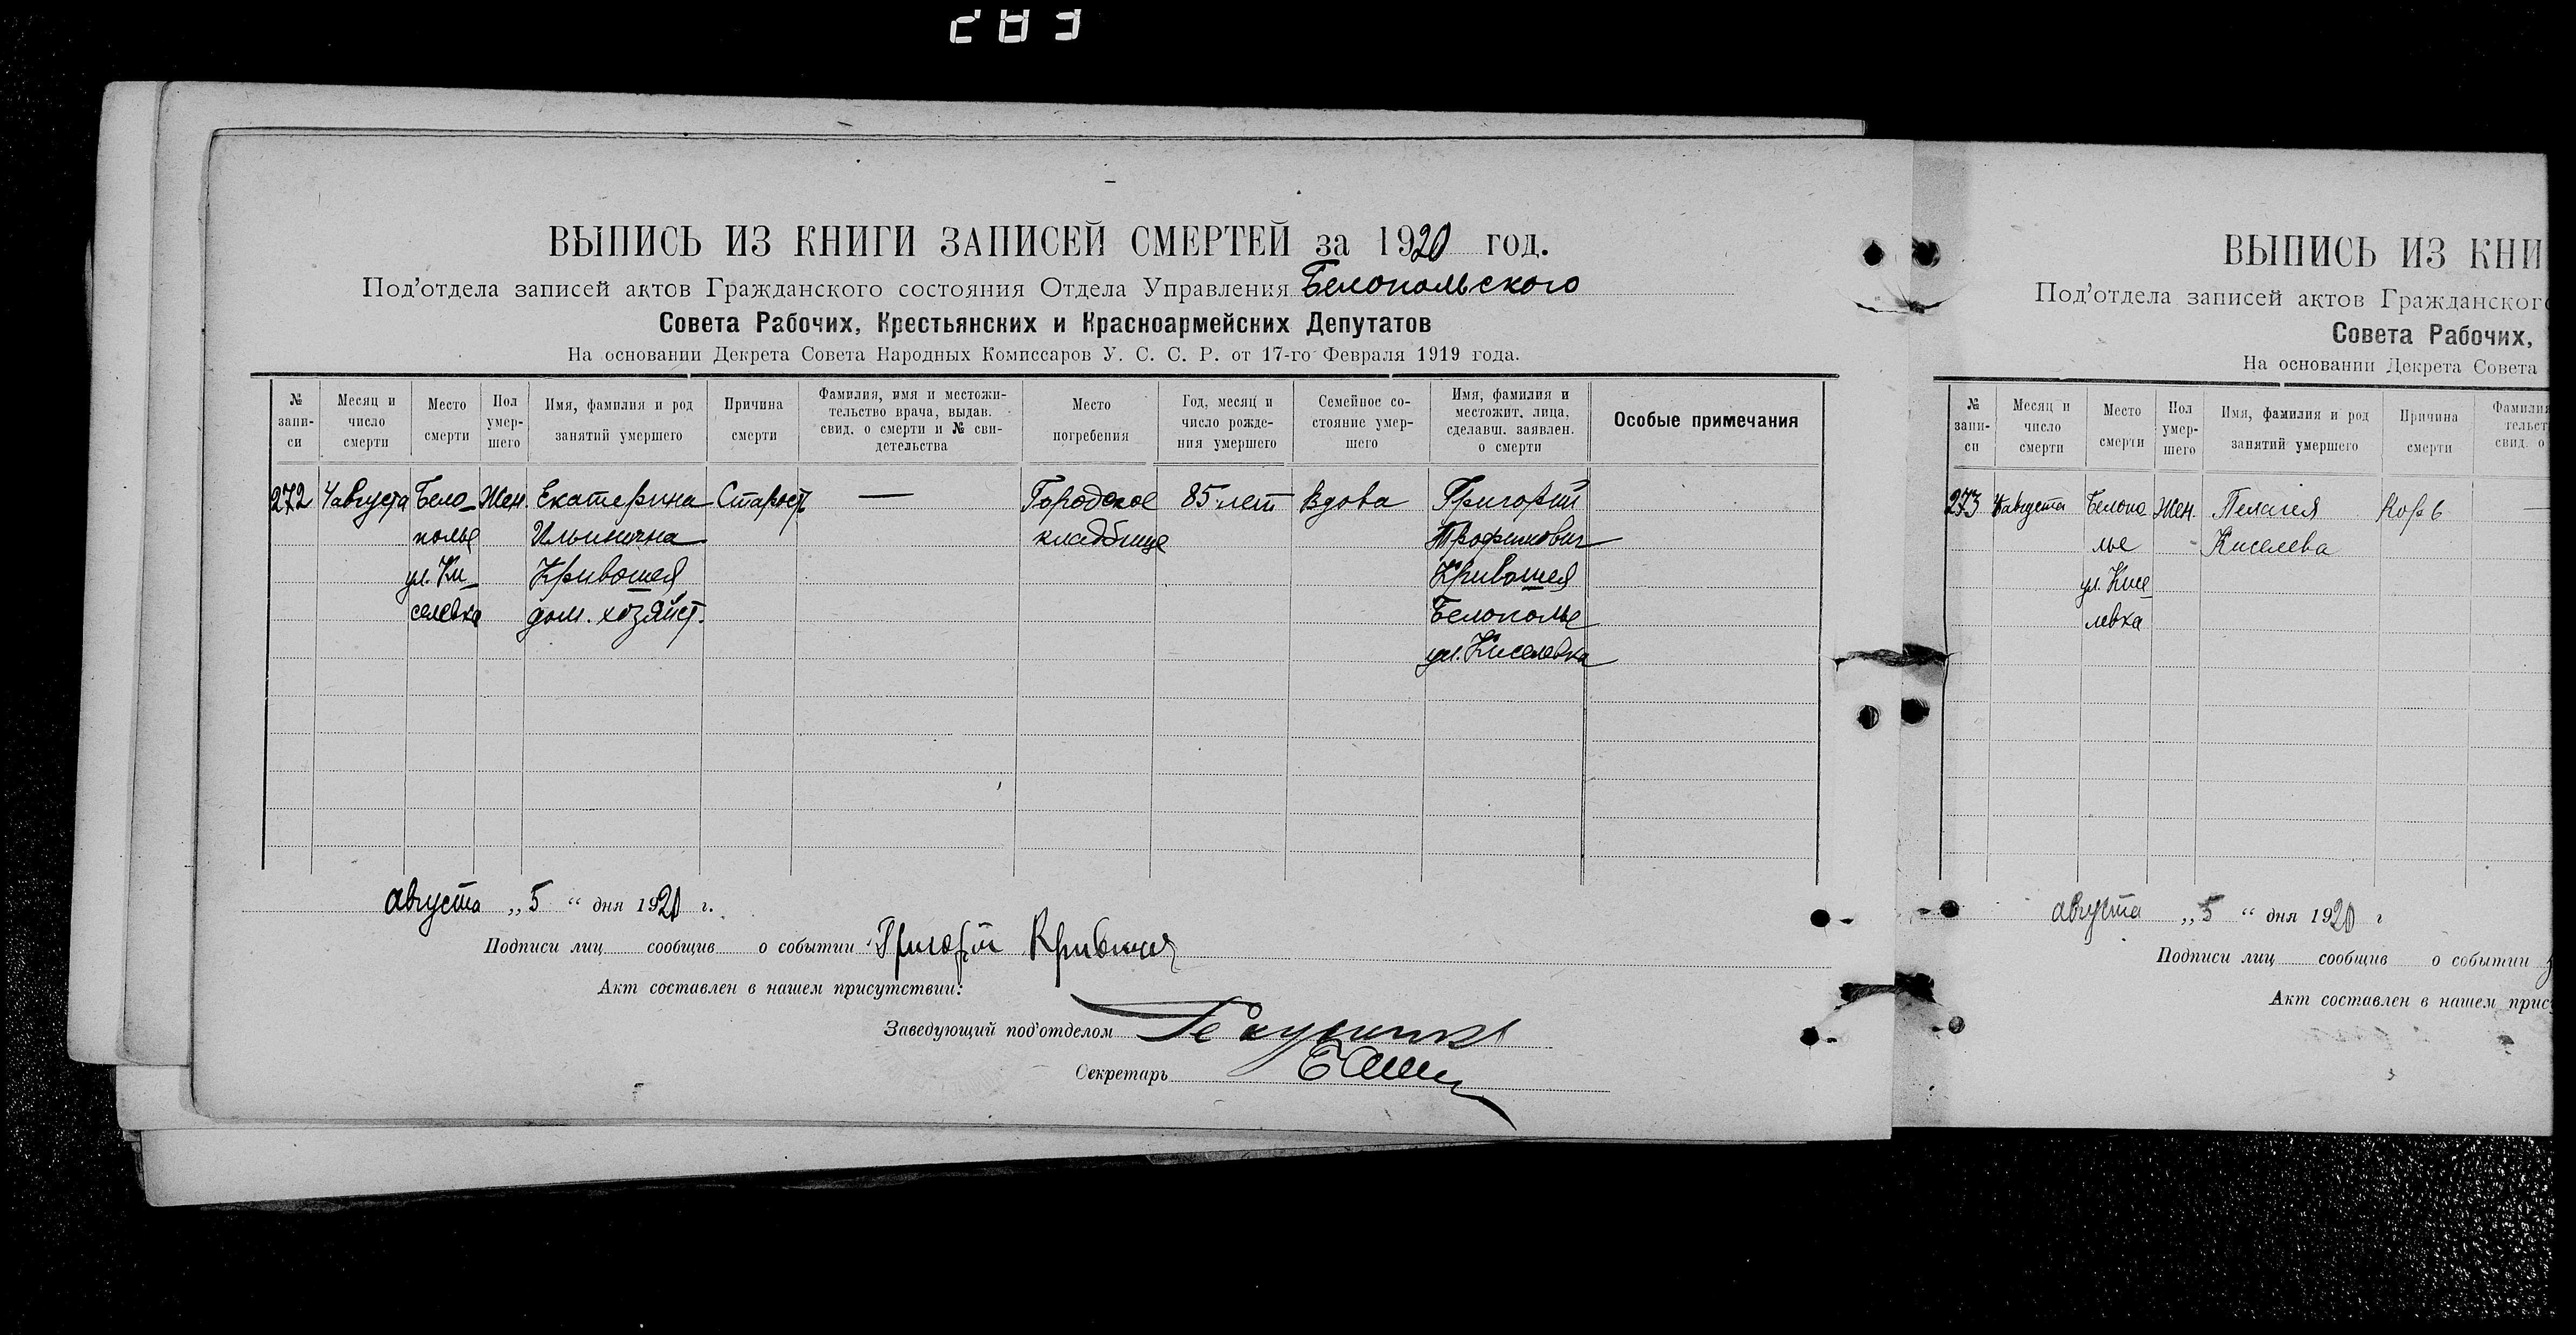 283
ВЫПИСЬ ИЗ КНИГИ ЗАПИСЕЙ СМЕРТЕЙ за 1920 год.
Под'отдела записей актов Гражданского состояния Отдела Управления Белопольского
Совета Рабочих, Крестьянских и Красноармейских Депутатов
На основании Декрета Совета Народных Комиссаров У. С. С. Р. от 17-го Февраля 1919 года.
№ запи-си
Месяц и число смерти
Место смерти
Пол умер-шего
Имя, фамилия и род занятий умершего
Причина смерти
Фамилия, имя и местожи-тельство врача, выдав. свид. о смерти и № сви-детельства
Место погребения
Год, месяц и число рожде-ния умершего
Семейное со-стояние умер-шего
Имя, фамилия и местожит. лица, сделавш. заявлен. о смерти
Особые примечания
272 4 августа Бело- Жен. Екатерина Старост. — Городское 85 лет Вдова Григорий
полье Ильинична кладбище Трофимович
ул. Ки- Кривошея Кривошея
селевка дом. хозяйст. Белополье
ул. Киселевка
августа „5“ дня 1920 г.
Подписи лиц сообщив о событии Григорій Кривошея
Акт составлен в нашем присутствии:
Заведующий под'отделом
Секретарь
ВЫПИСЬ ИЗ КНИ
Под'отдела записей актов Гражданского
Совета Рабочих,
На основании Декрета Совета
№ запи-си
Месяц и число смерти
Место смерти
Пол умер-шего
Имя, фамилия и род занятий умершего
Причина смерти
Фамилия
тельст
свид. о
273 4 августа Белопо Жен. Пелагея Корь —
лье Киселева
ул. Кисе
левка
августа „5“ дня 1920 г
Подписи лиц сообщив о событии
Акт составлен в нашем прис